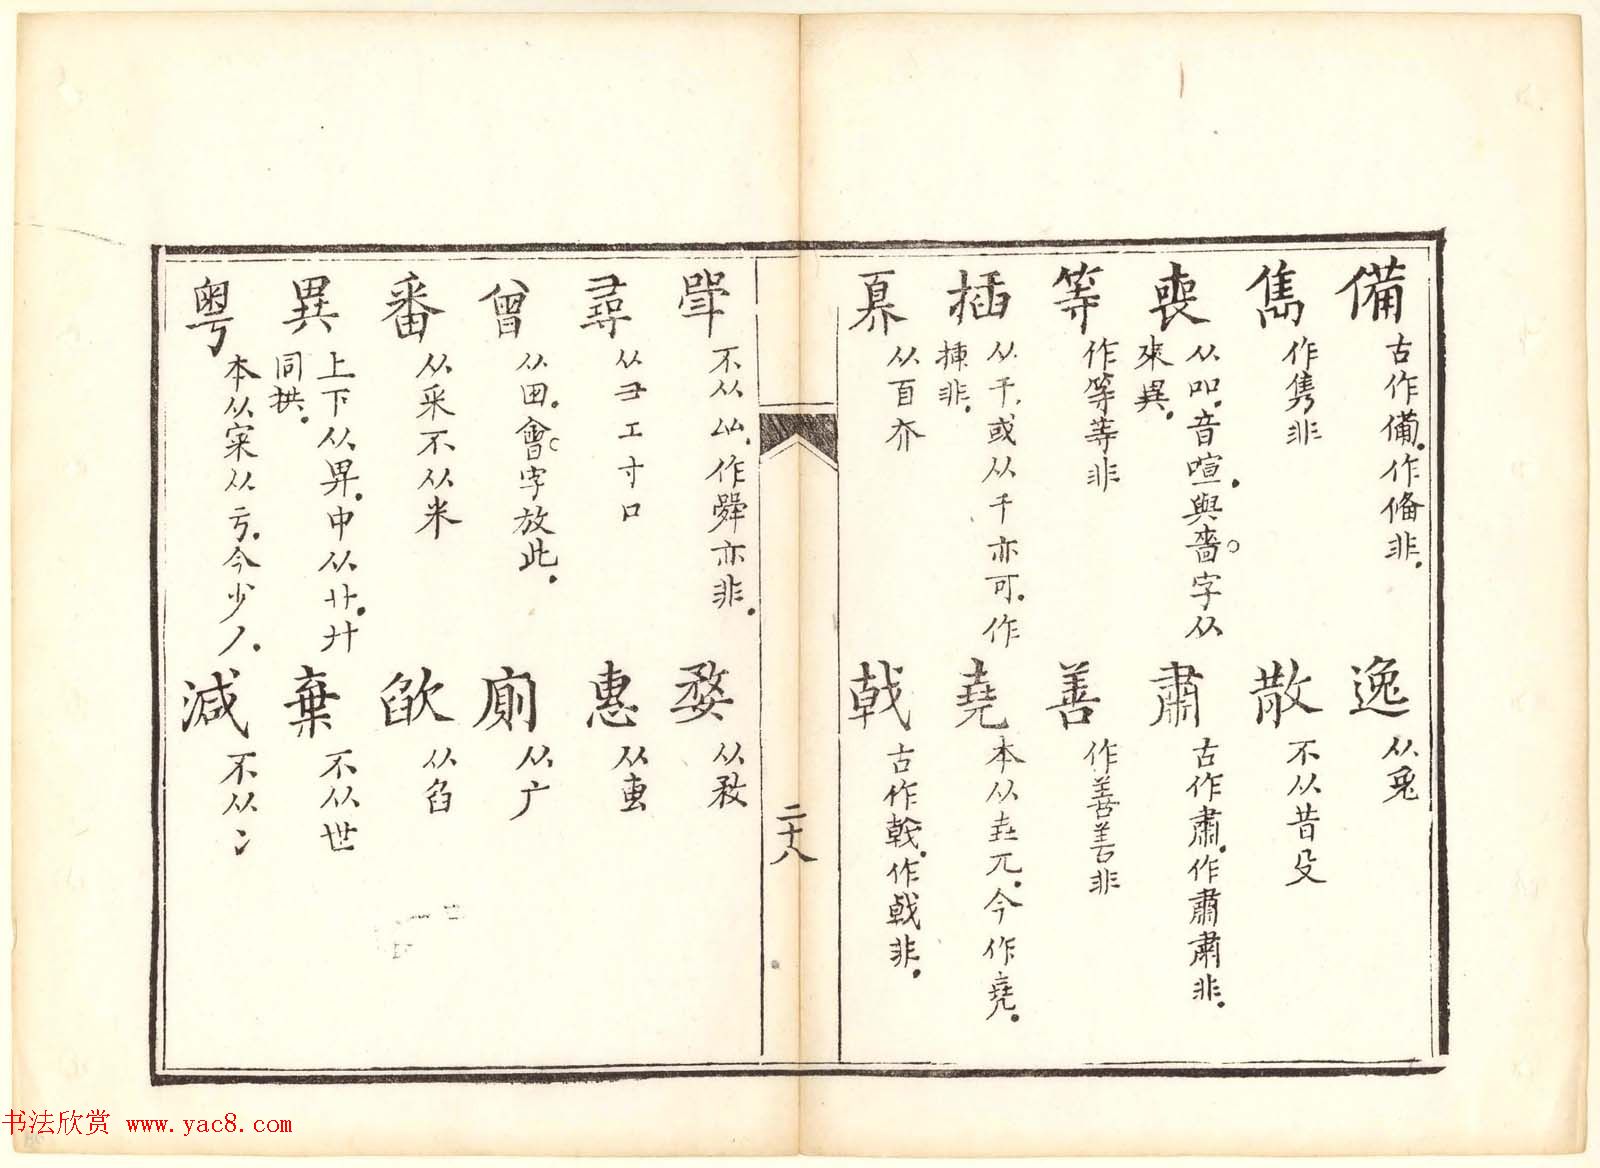 備 古作俻。作俻非。
逸 从兔
雋 作隽非
散 不从昔殳
喪 从吅。音喧。與嗇字从來異。
肅 古作肃。作肅肅非。
等 作等等非
善 作善善非
插 从千。或从干亦可。作揷非。
堯 本从垚兀。今作尭。
奡 从百夰
戟 古作戟。作戟非。
二十八
不从厸。作舜亦非。
婺 从敄
尋 从彐工寸口
惠 从叀
曾 从田。會字放此。
廁 从广
番 从釆不从米
欿 从臽
異 上下从畀。中从廾。廾同拱。
棄 不从世
粵 本从宷从亏。今少丿。
減 不从冫
书法欣赏 www.yac8.com